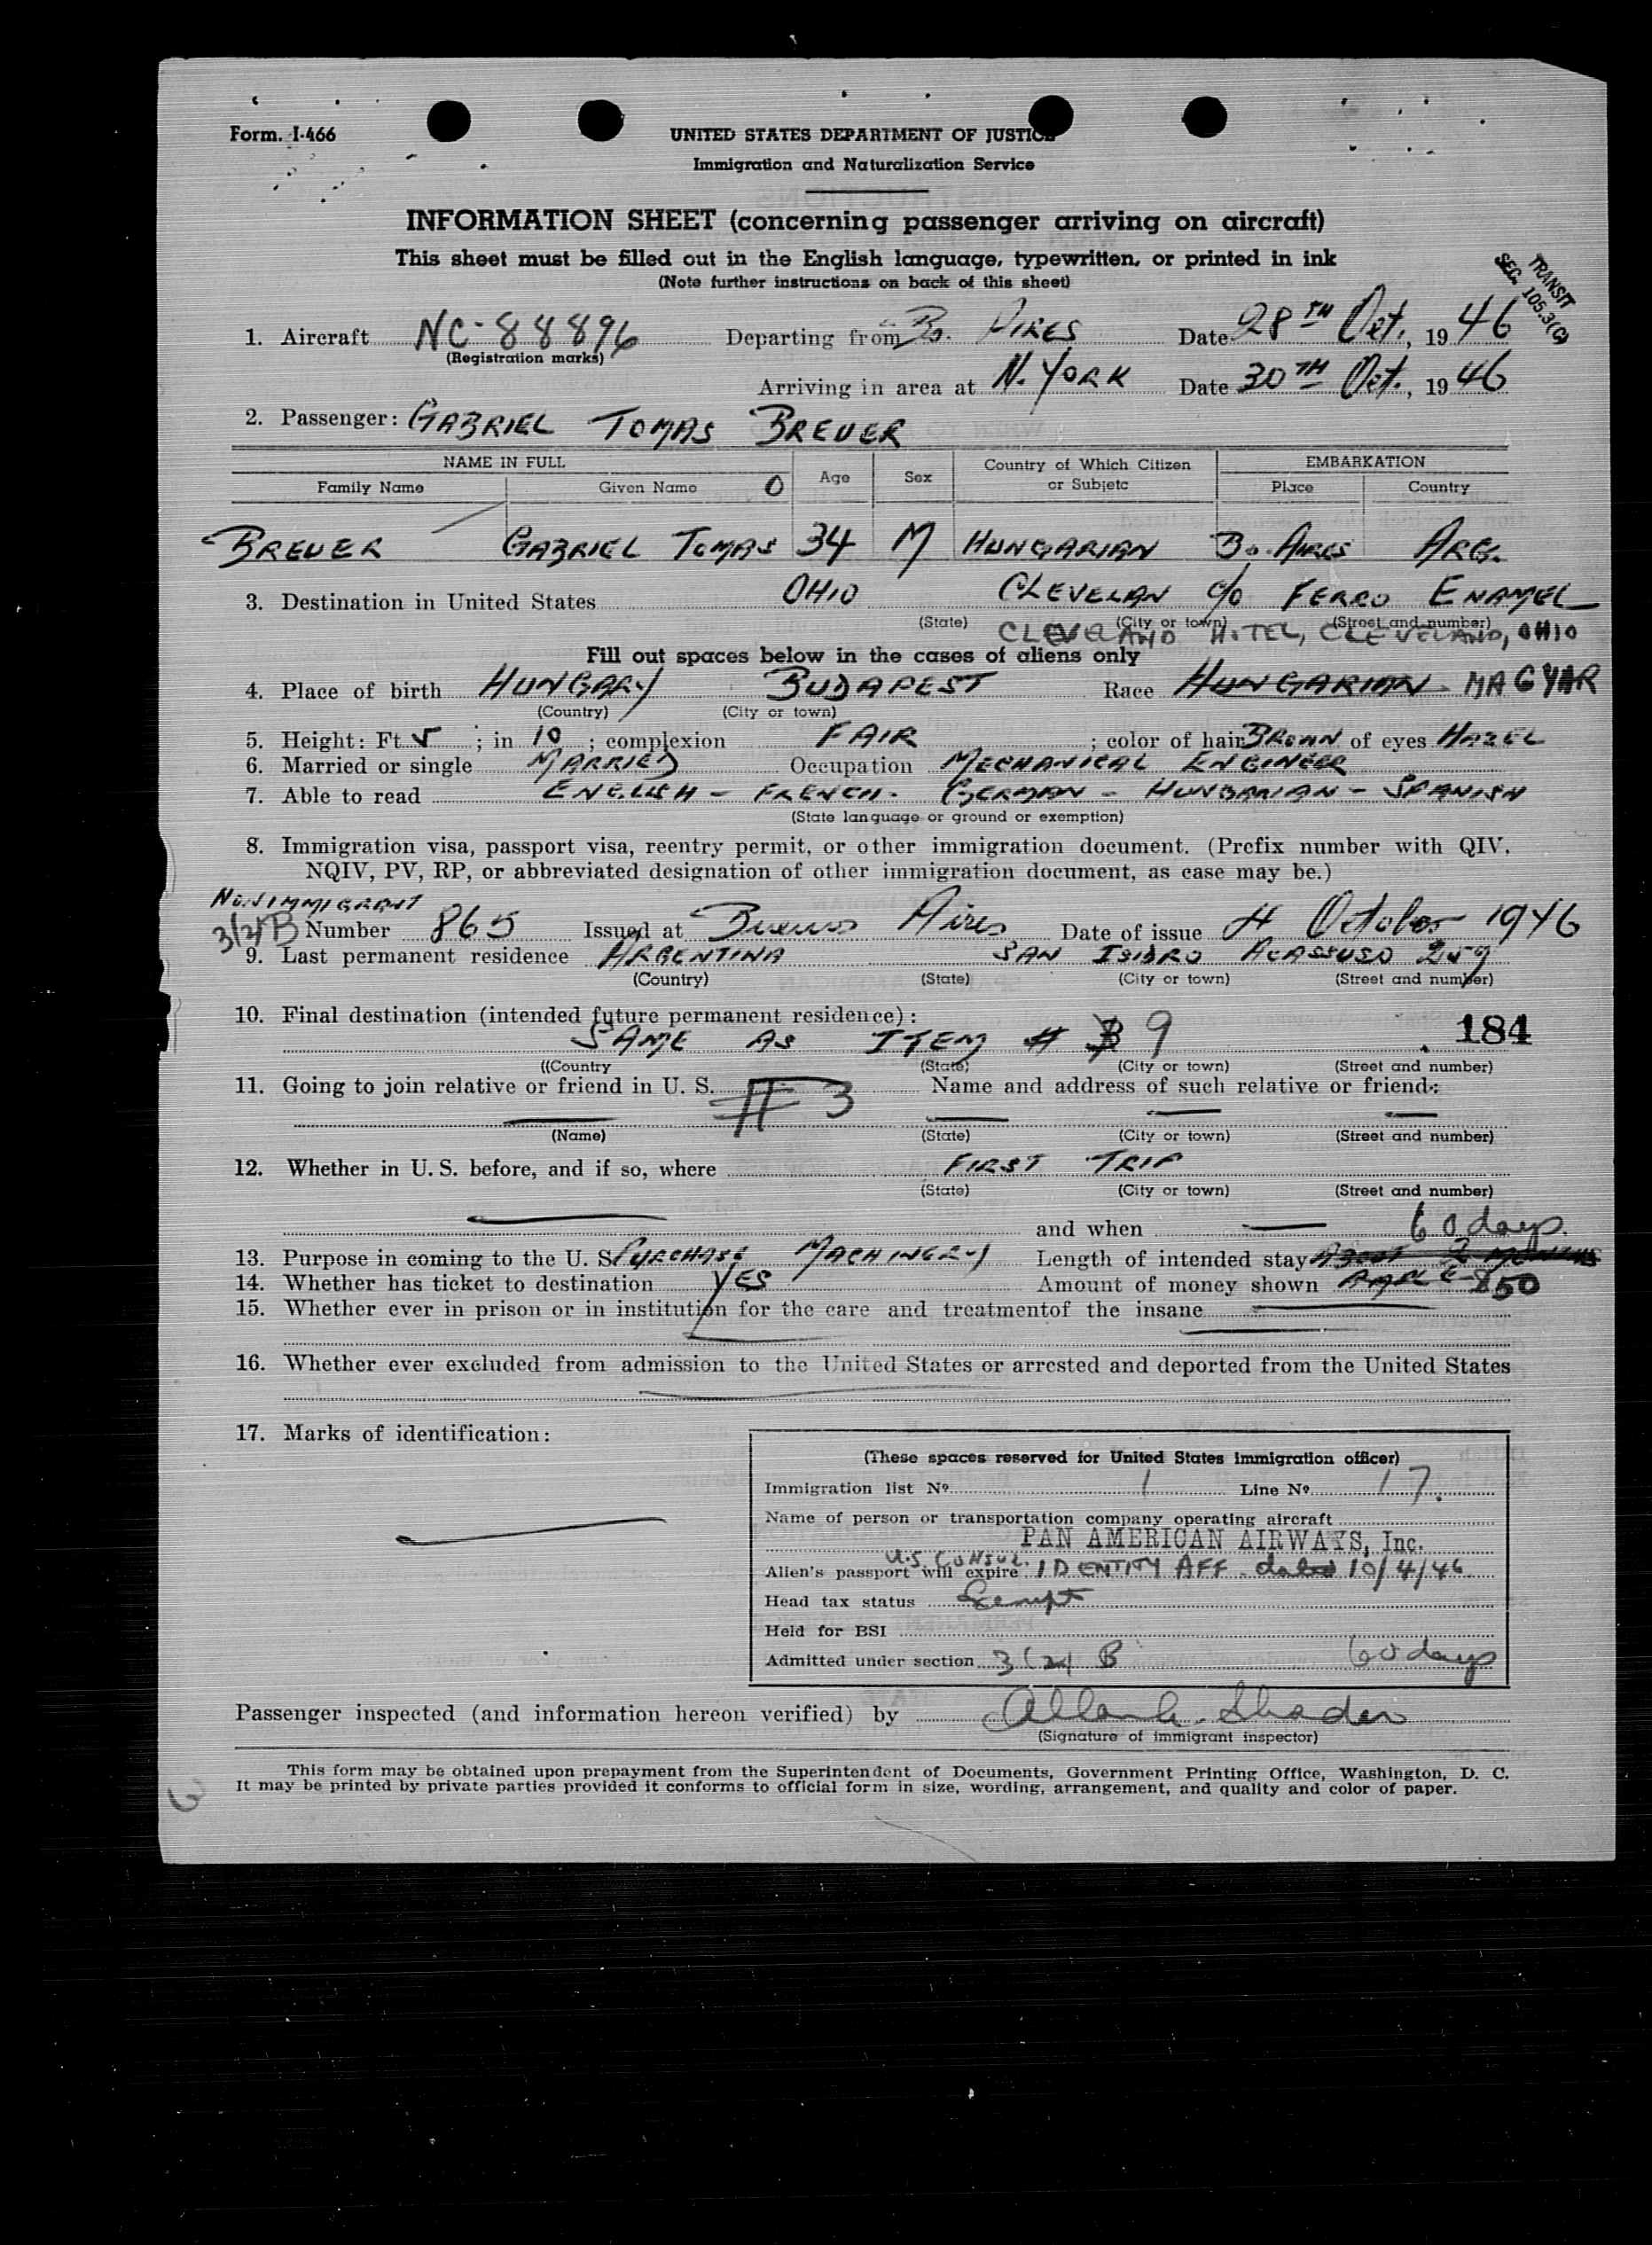 Form. I-466
UNITED STATES DEPARTMENT OF JUSTICE
Immigration and Naturalization Service
INFORMATION SHEET (concerning passenger arriving on aircraft)
This sheet must be filled out in the English language, typewritten, or printed in ink
(Note further instructions on back of this sheet)
TRANSIT
SEC. 105.3(C)
1. Aircraft NC-88896 Departing from Bs. AIRES Date 28TH Oct., 1946
(Registration marks)
Arriving in area at N. YORK Date 30TH Oct., 1946
2. Passenger: GABRIEL TOMAS BREUER
NAME IN FULL Age Sex Country of Which Citizen or Subjetc EMBARKATION
Family Name Given Name O Place Country
BREUER GABRIEL TOMAS 34 M HUNGARIAN Bs. AIRES ARG.
3. Destination in United States OHIO CLEVELAN c/o FERRO ENAMEL
(State) (City or town) (Street and number)
CLEVELAND HOTEL, CLEVELAND, OHIO
Fill out spaces below in the cases of aliens only
4. Place of birth HUNGARY BUDAPEST Race HUNGARIAN MAGYAR
(Country) (City or town)
5. Height: Ft. 5 ; in 10 ; complexion FAIR ; color of hair BROWN of eyes HAZEL
6. Married or single MARRIED Occupation MECHANICAL ENGINEER
7. Able to read ENGLISH - FRENCH - GERMAN - HUNGARIAN - SPANISH
(State language or ground or exemption)
8. Immigration visa, passport visa, reentry permit, or other immigration document. (Prefix number with QIV,
NQIV, PV, RP, or abbreviated designation of other immigration document, as case may be.)
NONIMMIGRANT
3(2)B Number 865 Issued at Buenos Aires Date of issue 4 October 1946
9. Last permanent residence ARGENTINA SAN ISIDRO ACASSUSO 259
(Country) (State) (City or town) (Street and number)
10. Final destination (intended future permanent residece):
SAME AS ITEM # 9 184
((Country (State) (City or town) (Street and number)
11. Going to join relative or friend in U. S. #3 Name and address of such relative or friend:
(Name) (State) (City or town) (Street and number)
12. Whether in U. S. before, and if so, where FIRST TRIP
(State) (City or town) (Street and number)
and when 60 days.
13. Purpose in coming to the U. S. PURCHASE MACHINERY Length of intended stay
14. Whether has ticket to destination YES Amount of money shown 850
15. Whether ever in prison or in institution for the care and treatmentof the insane
16. Whether ever excluded from admission to the United States or arrested and deported from the United States
17. Marks of identification:
(These spaces reserved for United States immigration officer)
Immigration list Nº 1 Line Nº 17.
Name of person or transportation company operating aircraft
PAN AMERICAN AIRWAYS, Inc.
U.S. CONSUL.
Alien's passport will expire IDENTITY AFF. dated 10/4/46
Head tax status Exempt
Held for BSI
Admitted under section 3(2) B 60 days
Passenger inspected (and information hereon verified) by
(Signature of immigrant inspector)
This form may be obtained upon prepayment from the Superintendent of Documents, Government Printing Office, Washington, D. C.
It may be printed by private parties provided it conforms to official form in size, wording, arrangement, and quality and color of paper.